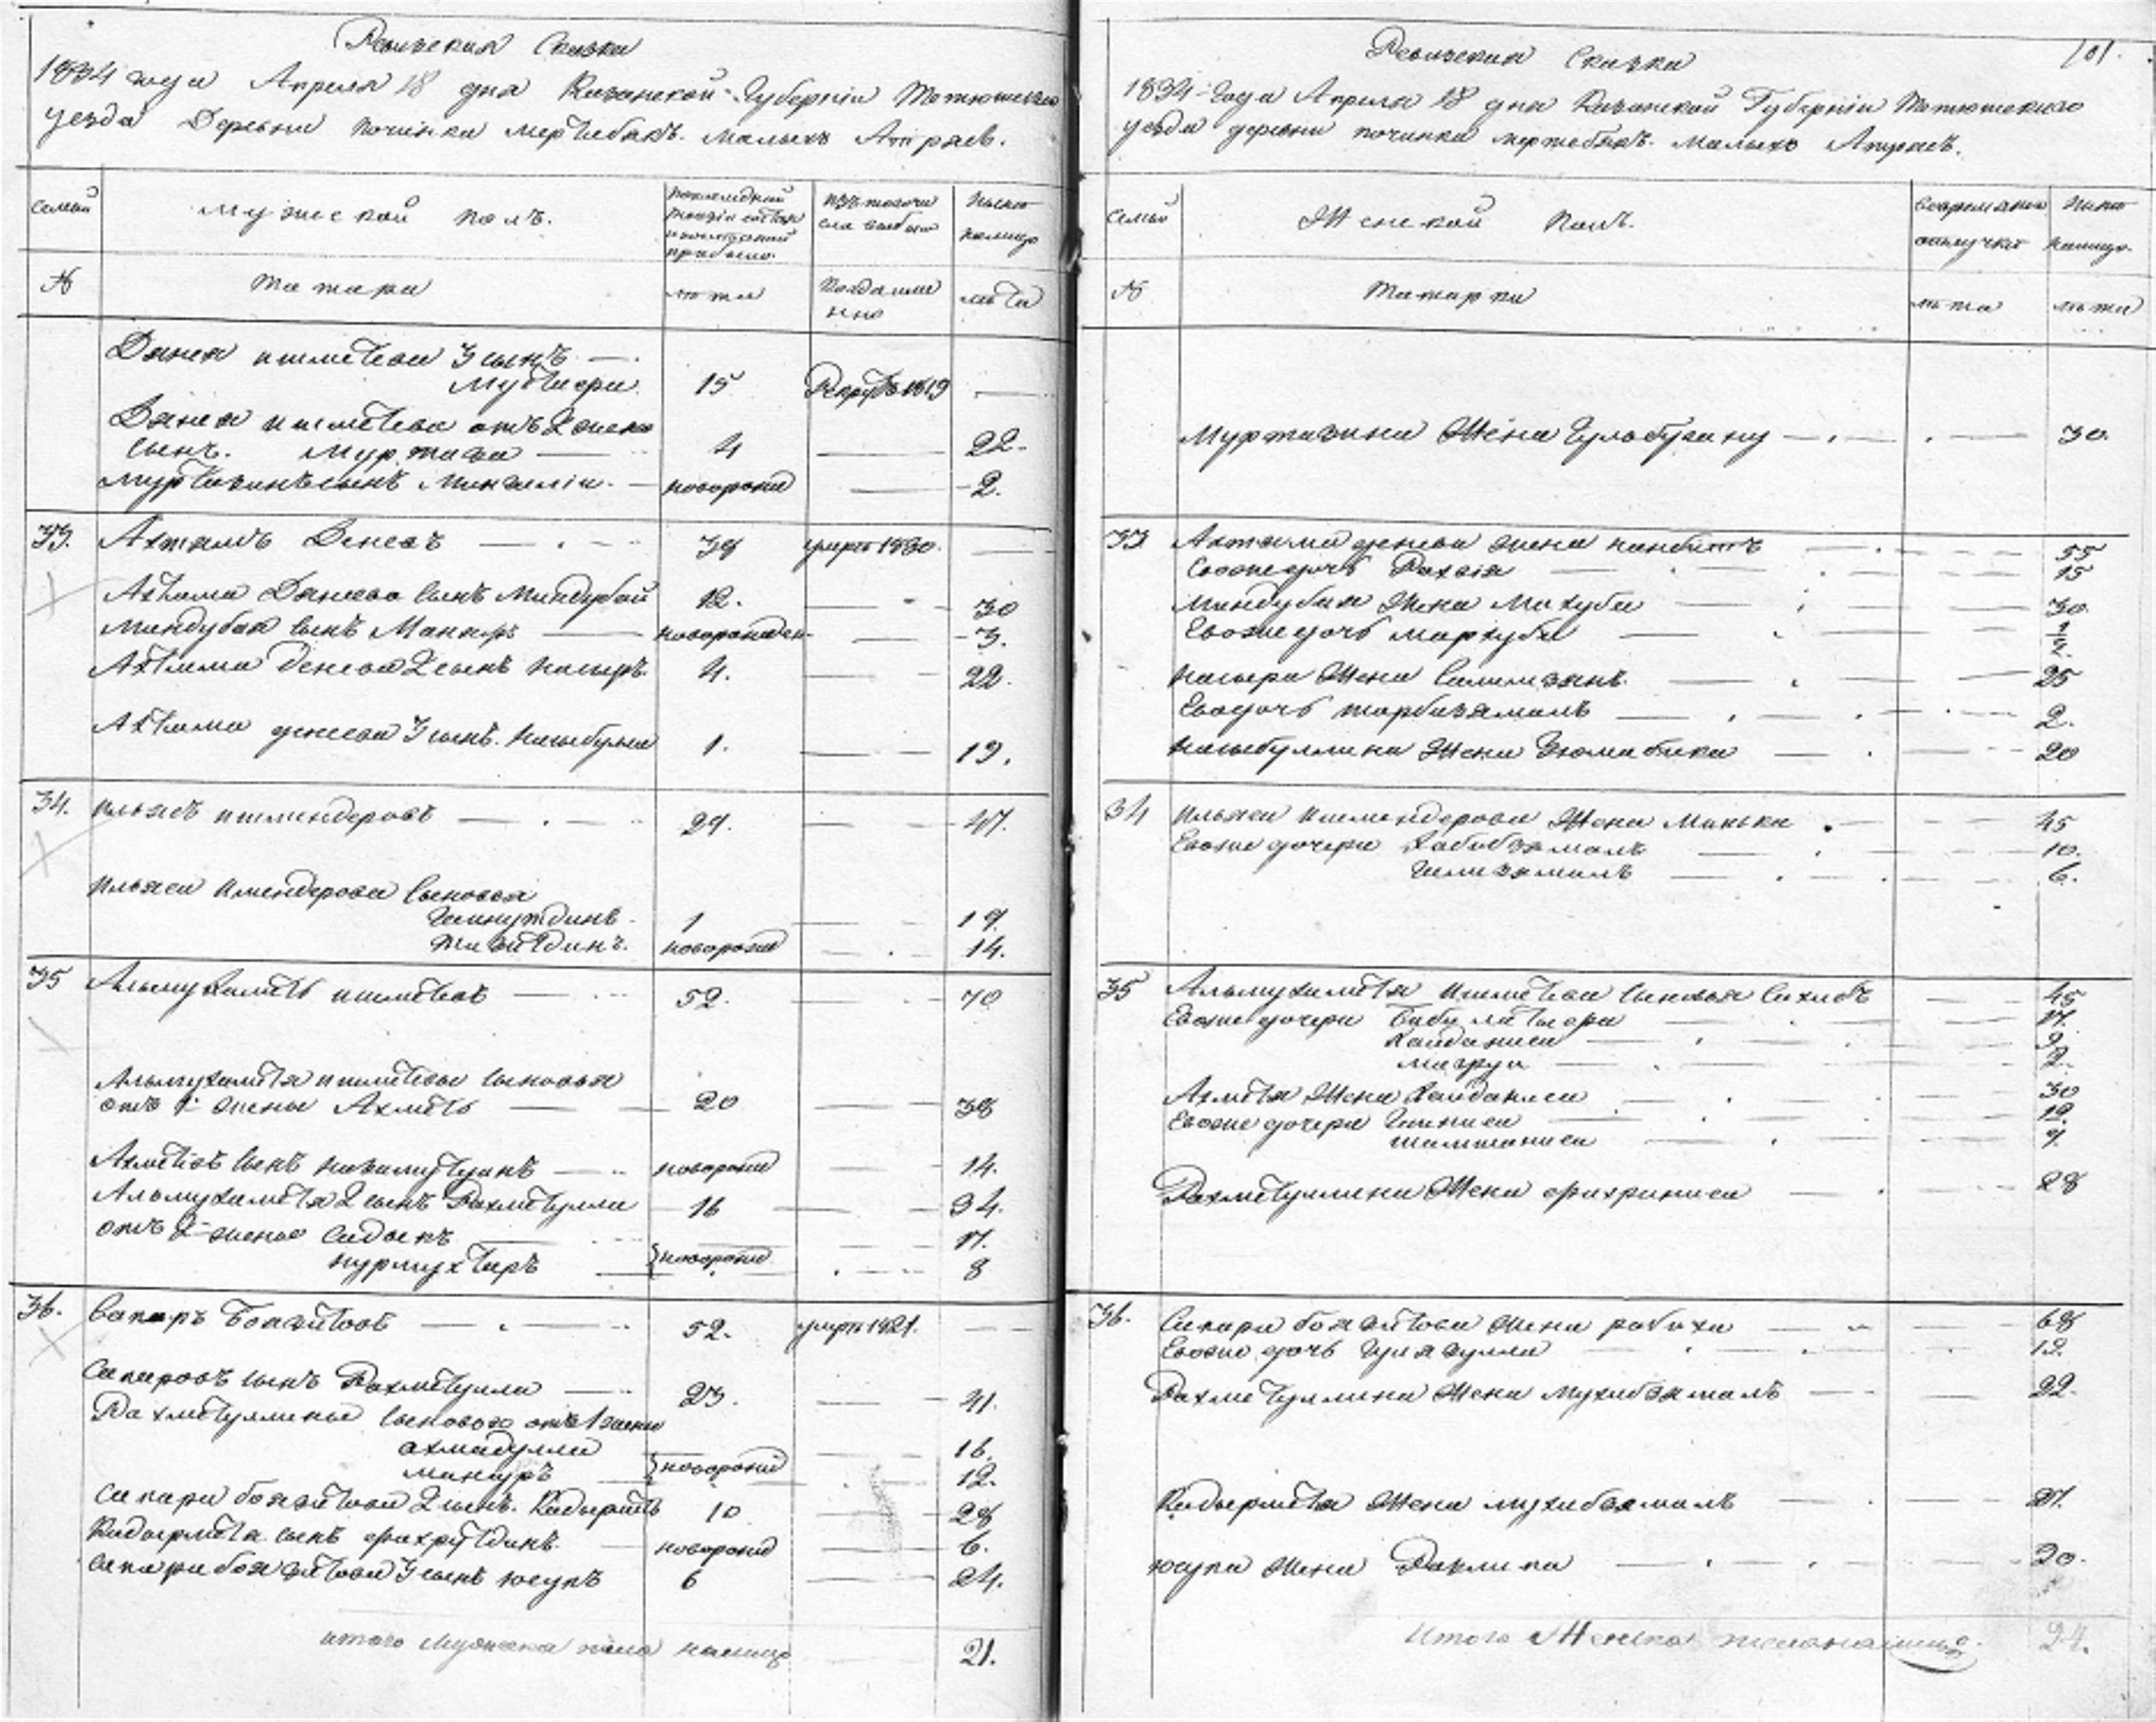 Ревизская Сказка
1834 года Апреля 18 дня Казанской Губернии Тетюшского
уезда Деревни починка мертебакъ. малыхъ Атряс.
семьи
мужской полъ.
последней
ревизии состояло
и после оной
прибыло.
изъ того чи
сла выбыло
ныне
налицо
№
татара
лета
когда име
нно
лета
Данея ишметева 3 сынъ —
Мутыгри. 15 Рекрутъ 1819 —
Данея ишметева отъ 2 жены
сынъ. Муртаза — 4 — 22.
Муртазинъ сынъ Мингали. — новорожд — 2.
33. Ахтямъ Денеевъ — 38 умеръ 1830. —
Ахтяма Данеева сынъ Миндубай 12. — 30
Миндубая сынъ Манкиръ — новорожден — 3.
Ахтяма денеева 2 сынъ насыръ. 4. — 22.
Ахтяма денеева 3 сынъ. насыбулла 1. — 19.
34. ильясъ ишмендеровъ — 29. — 47.
ильяса имендерова сыновья
Гимнутдинъ. 1 — 19.
тазетдинъ. новорожд — 14.
35 Альмухаметъ ишметевъ — 52. — 70
Альмухаметя ишметевы сыновья
отъ 1 жены Ахметъ — 20 — 38
Ахметевъ сынъ — новорожд — 14.
Альмухаметя 2 сынъ Рахметулла 16 — 34.
отъ 2 жены Садыкъ — 17.
нурмухтяръ — новорожд — 8
36. Сапаръ Боязитовъ — 52. умеръ 1821. —
Сапаровъ сынъ Рахметулла — 23. — 41.
Рахметуллины сыновья отъ 1 жены
ахмадулла — 16.
мансуръ — новорожд — 12.
Сапара боязитова 2 сынъ. Кадырметъ 10 — 28
Кадырметя сынъ фахрутдинъ. новорожд — 6.
сапара боязитова 3 сынъ юсупъ 6 — 24.
итого мужска пола налицо 21.
101.
Ревизская Сказка
1834 Года Апреля 18 дня Казанской Губернии Тетюшского
уезда деревни починка мертебакъ. малыхъ Атрясъ.
семьи
Женской полъ.
во временной
отлучке
ныне
налицо.
№
татарки
лета
лета
Муртазина Жена Гульбустану — 30.
33 Ахтяма денеева жена — 55
Евоже дочь Рахвия — 15
миндубая Жена Махуба — 30.
Евоже дочь мархуба — 1/2.
насыра Жена Салимзянъ. — 25
Ево дочь торбизямалъ — 2.
насыбуллина Жена Гюмабика — 20
34 ильяса ишмендерова Жена Минька — 45
Евоже дочери Хабибзямалъ — 10.
Гилизямалъ — 6.
35 Альмухаметя ишметева Сахибъ — 45
Евоже дочери — 17.
Хайданиса — 9.
магруй — 2.
Ахметя Жена Хайданиса — 30
Евоже дочери Гайниса — 12.
шамшаниса — 9.
Рахметуллина Жена фахриниса — 28
36. Сапара боязитова Жена рабига — 68
Евоже дочь — 12.
Рахметуллина Жена мухибзямалъ — 22.
Кадырметя Жена мухибзямалъ — 21.
юсупа Жена — 20.
Итого Женска 24.